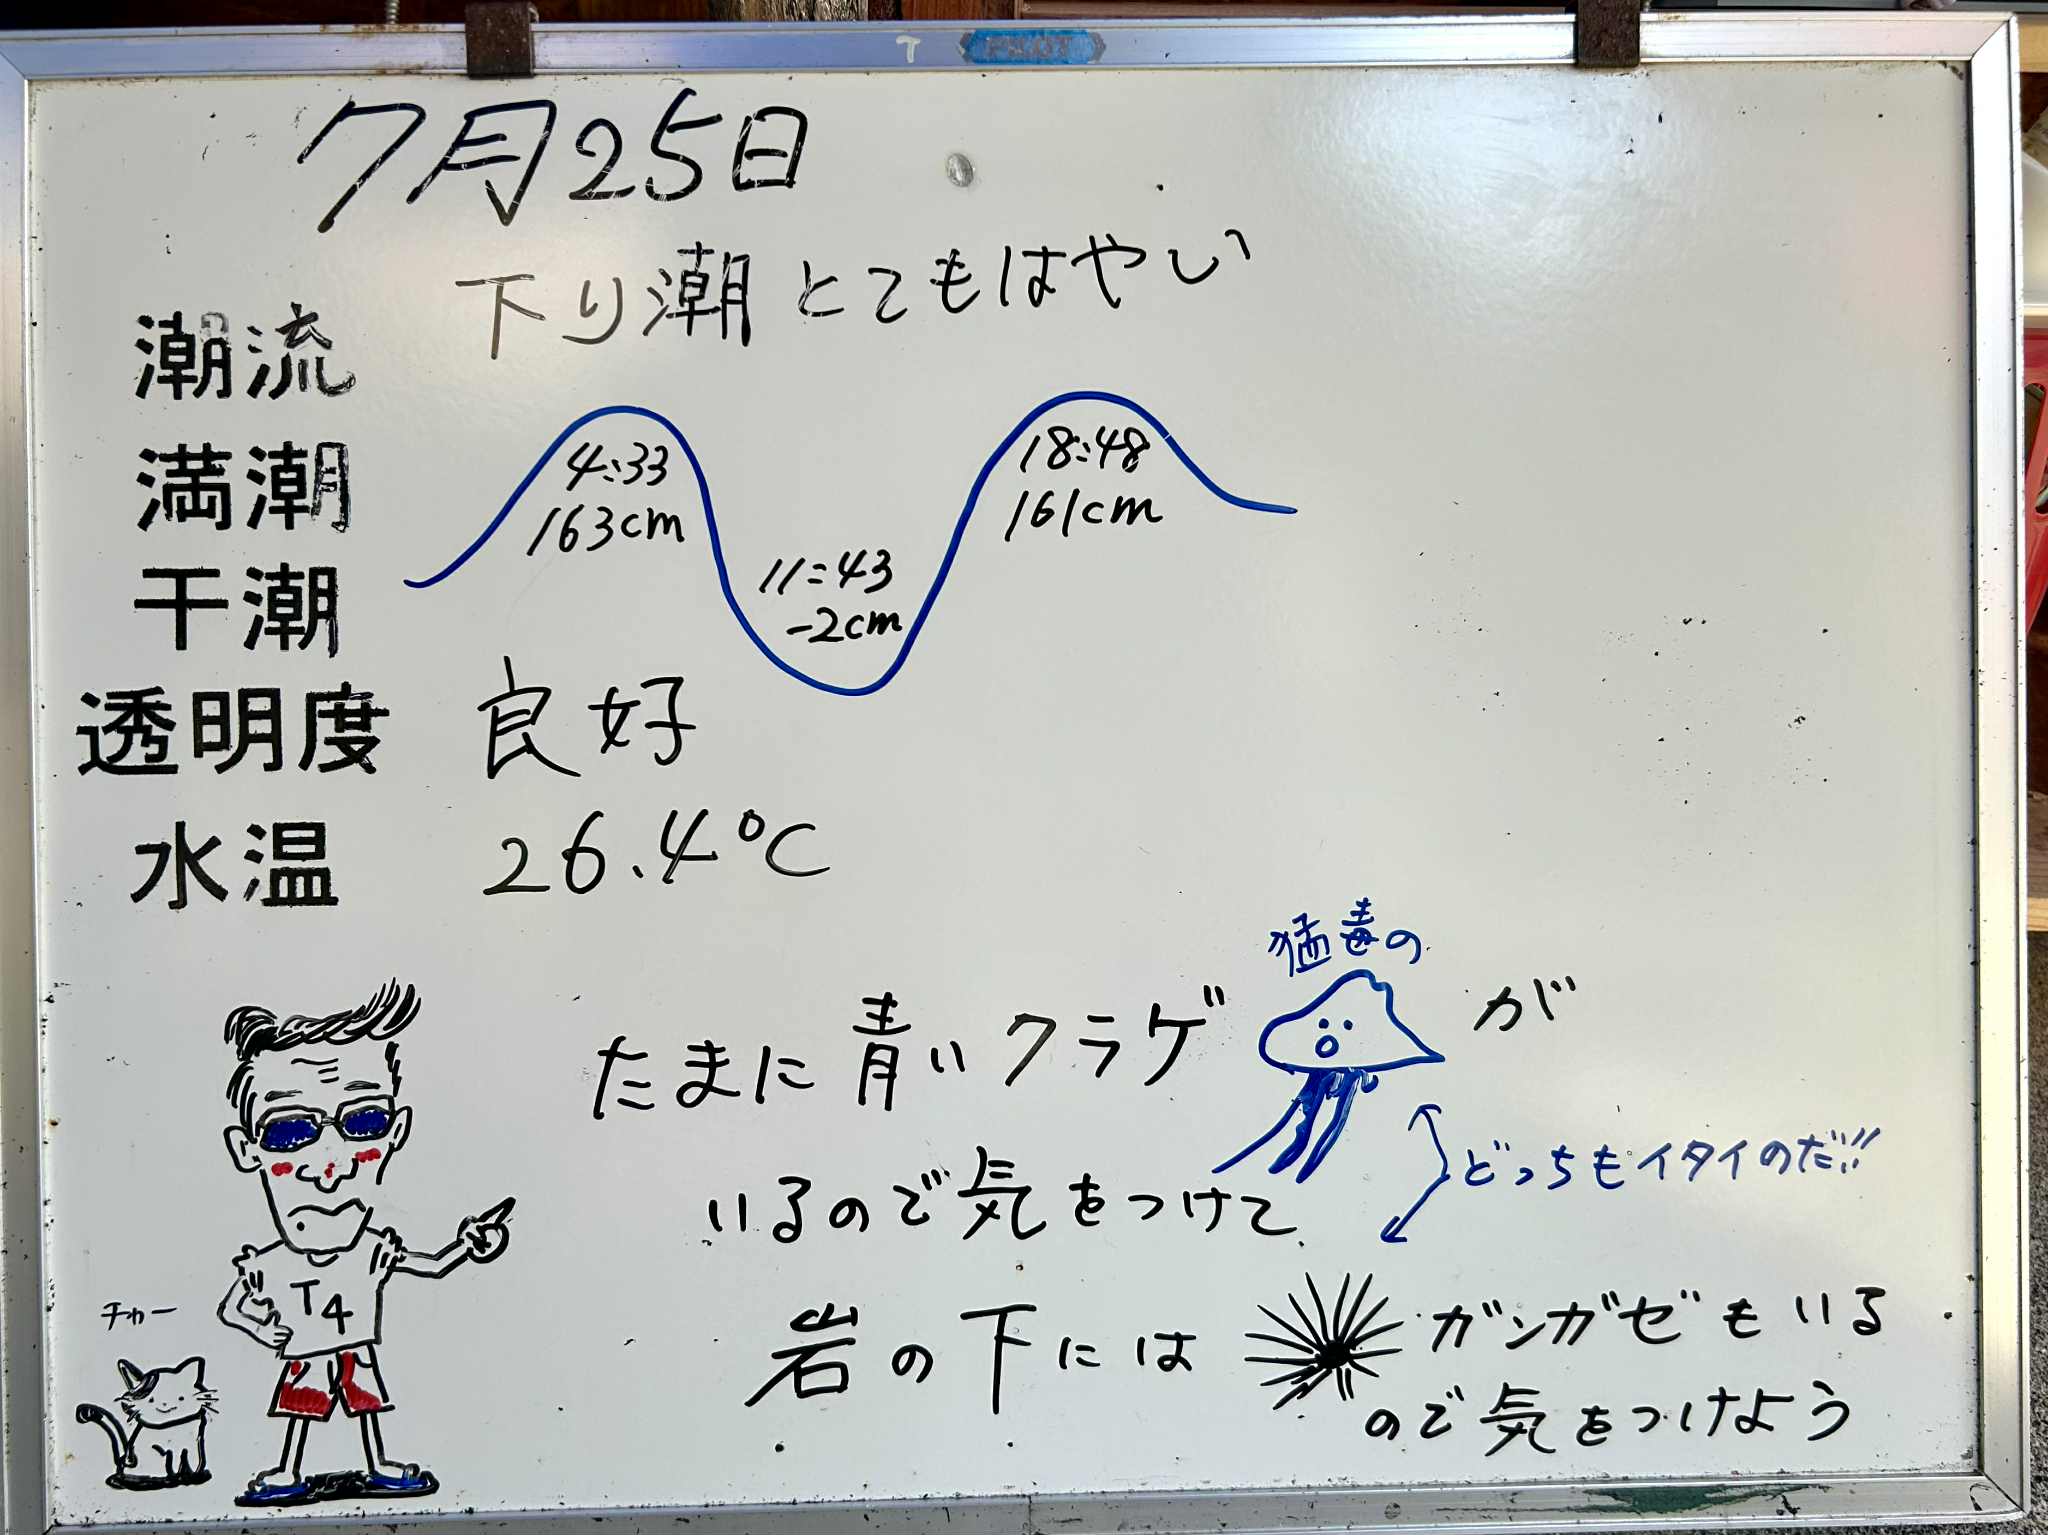 PILOT
7月25日
潮流 下り潮とてもはやい
満潮
4:33
163cm
18:48
161cm
干潮
11:43
-2cm
透明度 良好
水温 26.4℃
猛毒の
たまに青いクラゲが
いるので気をつけて
どっちもイタイのだ!!
岩の下にはガンガゼもいる
ので気をつけよう
T4
チャー